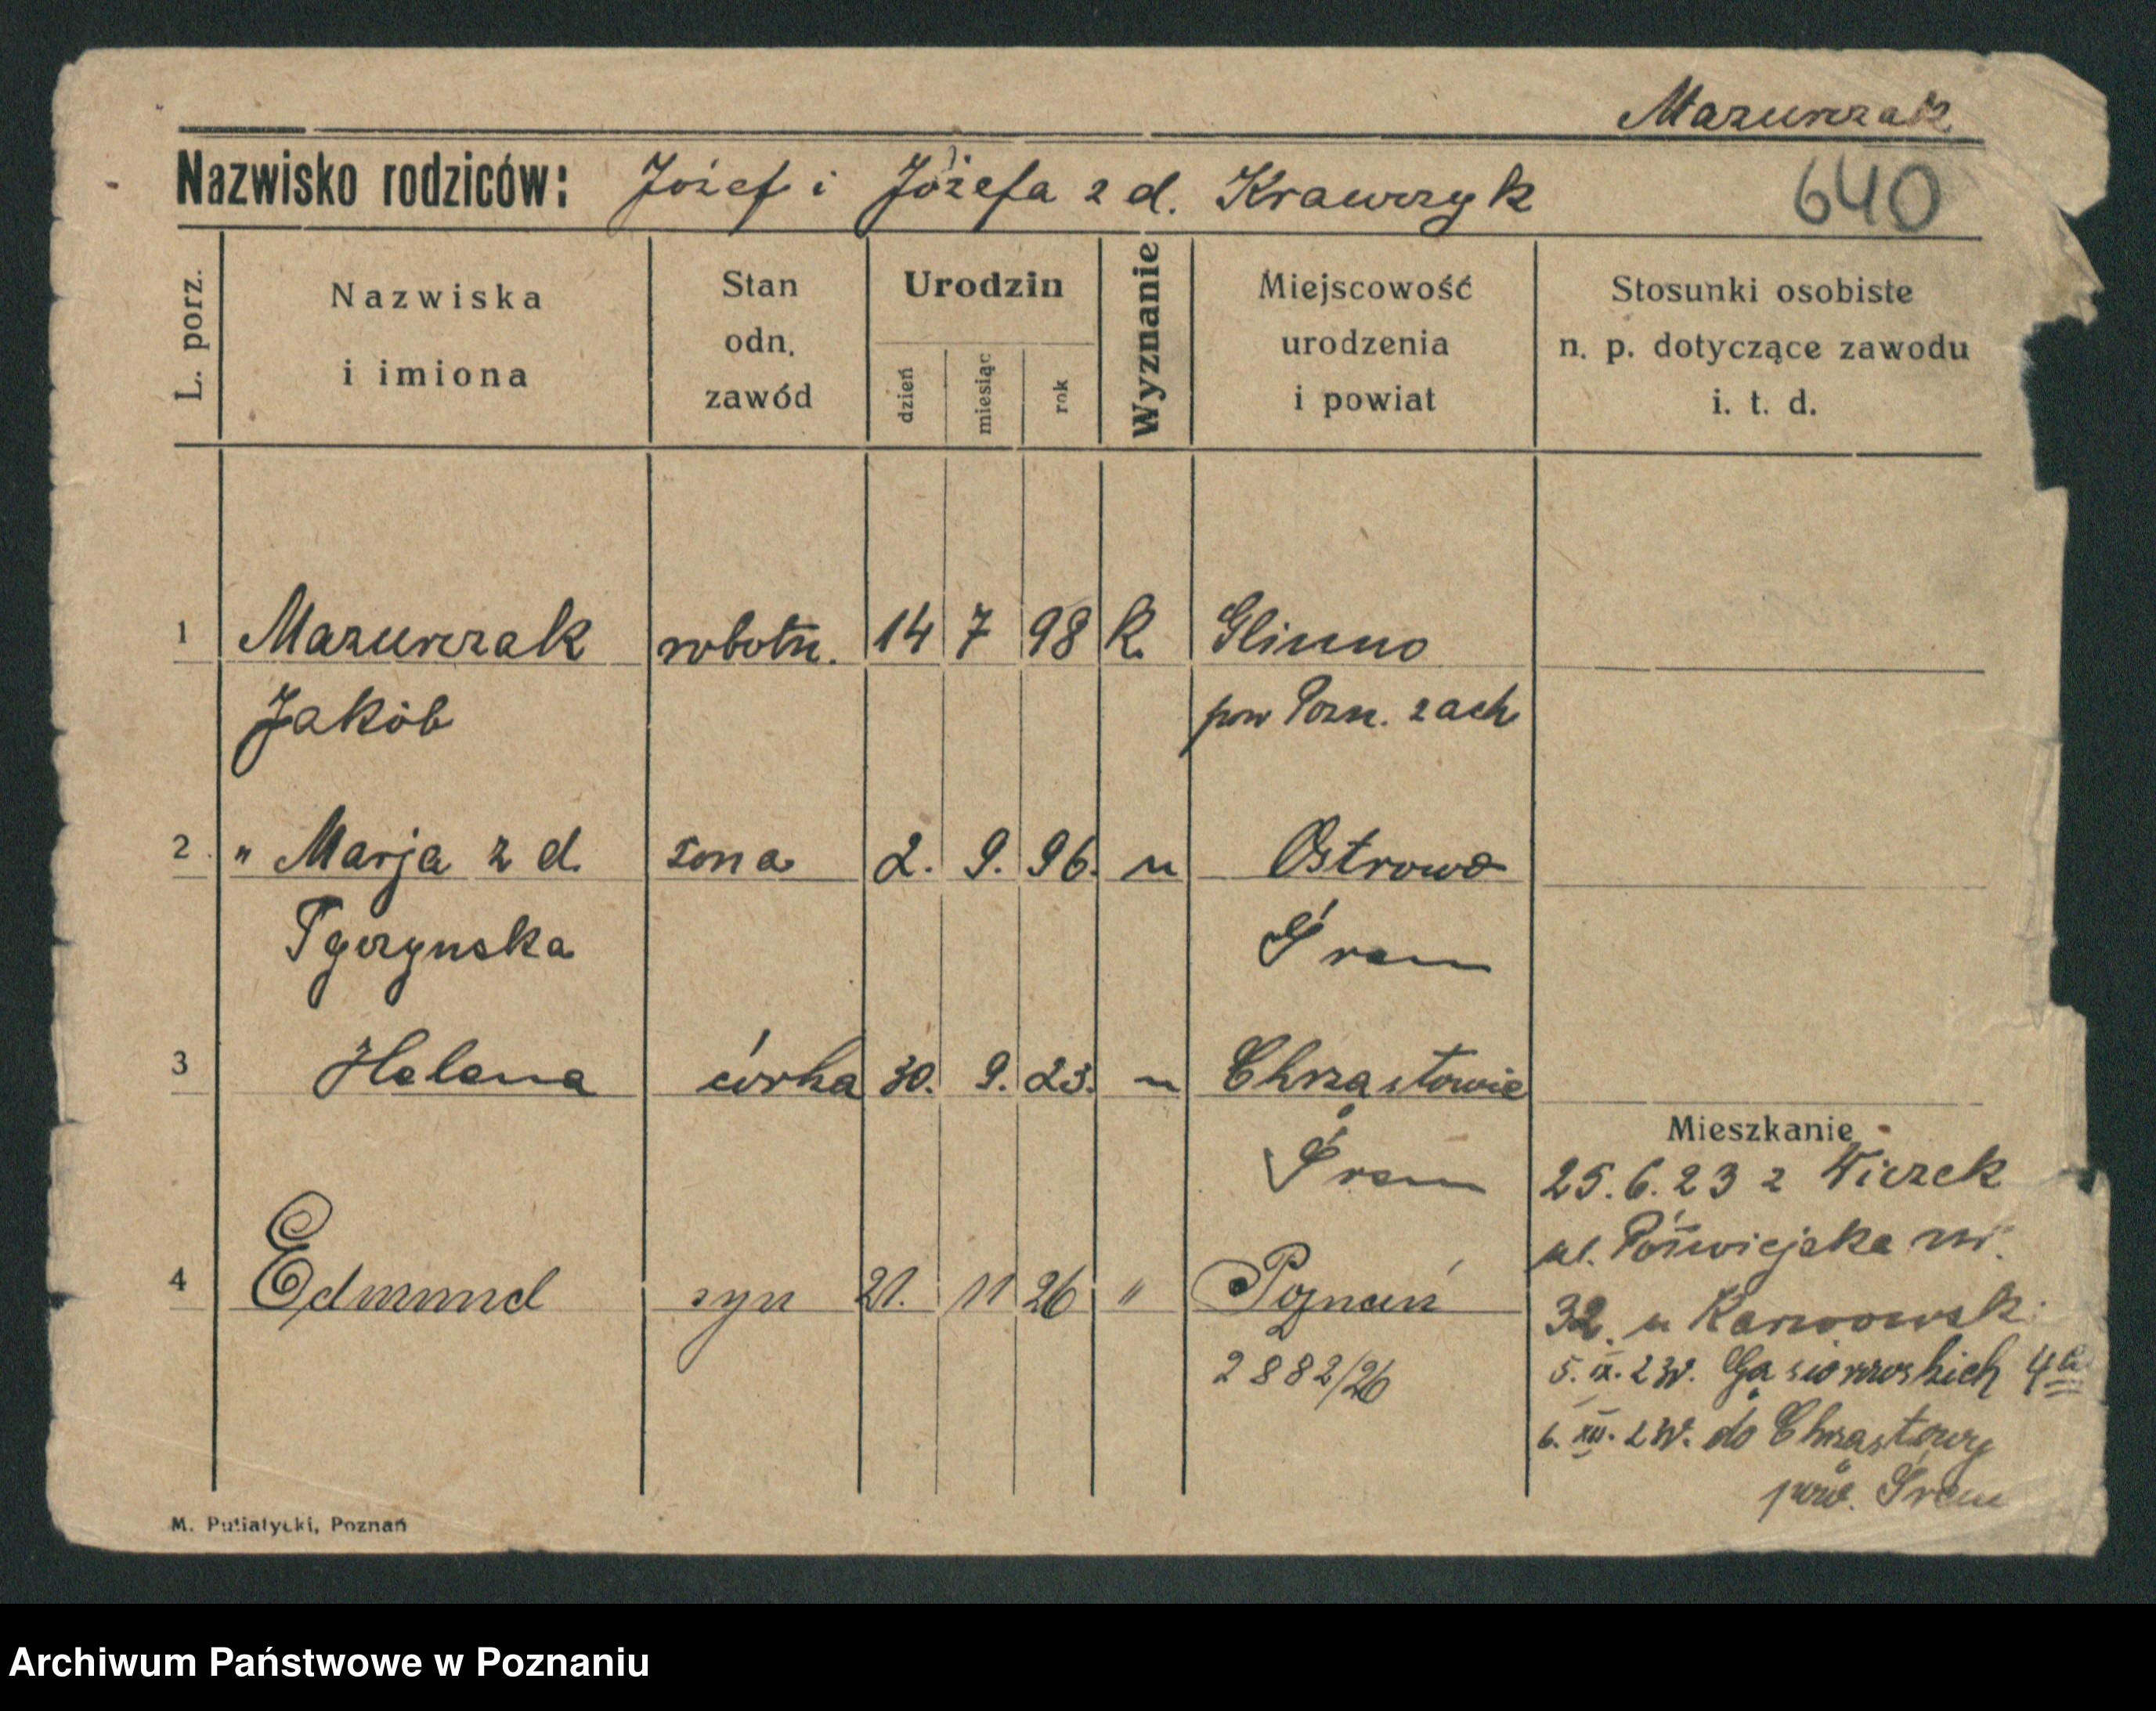 Mazurczak
Nazwisko rodziców: Józef i Józefa z d. Krawczyk
640
L. porz.
Nazwiska
i imiona
Stan
odn.
zawód
Urodzin
dzień
miesiąc
rok
Wyznanie
Miejscowość
urodzenia
i powiat
Stosunki osobiste
n. p. dotyczące zawodu
i. t. d.
1 Mazurczak robotn. 14 7 98 k. Glinno
Jakób pow Pozn. zach
2 " Marja z d. żona 2. 9. 96. " Ostrowo
Śrem
3 Helena córka 30. 9. 23. " Chrząstowie
Śrem
4 Edmund syn 21. 11 26 " Poznań
2882/26
Mieszkanie
25.6.23 z
ul. Półwiejska nr.
32. u
5. IX. Gąsiorowskich
6. XII. do Chrząstowy
pow. Śrem
M. Putiatycki, Poznań
Archiwum Państwowe w Poznaniu